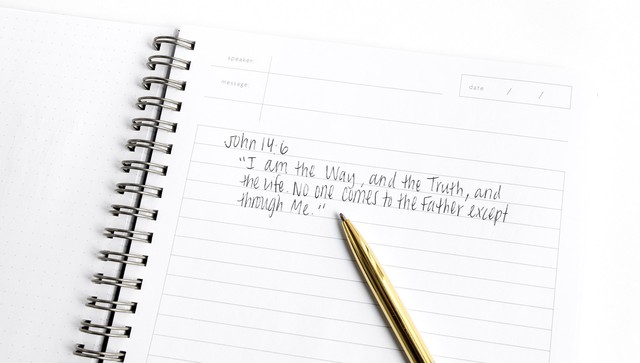 speaker:
message:
date / /
John 14:6
"I am the Way, and the Truth, and
the life. No one comes to the Father except
through Me."